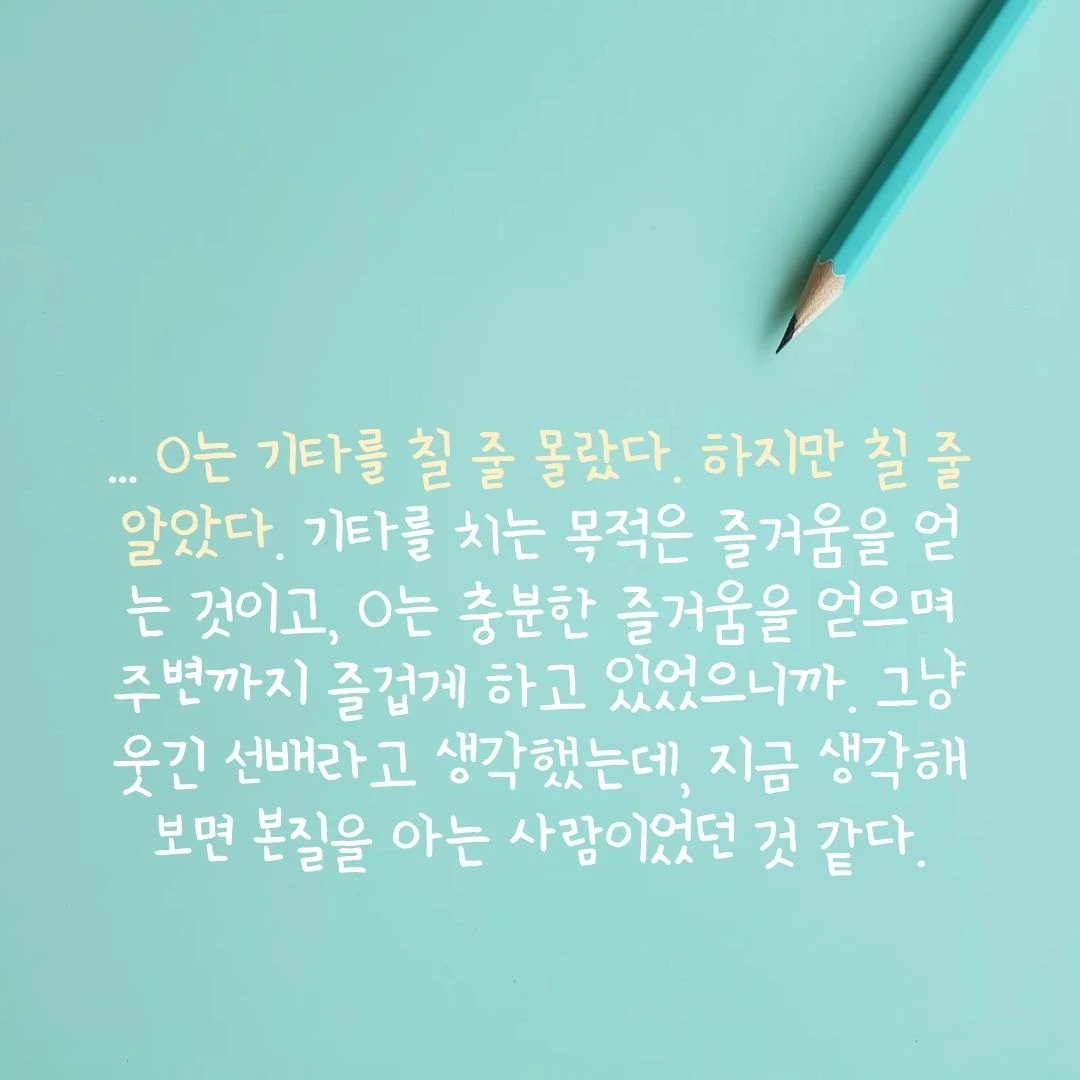 ... O는 기타를 칠 줄 몰랐다. 하지만 칠 줄
알았다. 기타를 치는 목적은 즐거움을 얻
는 것이고, O는 충분한 즐거움을 얻으며
주변까지 즐겁게 하고 있었으니까. 그냥
웃긴 선배라고 생각했는데, 지금 생각해
보면 본질을 아는 사람이었던 것 같다.